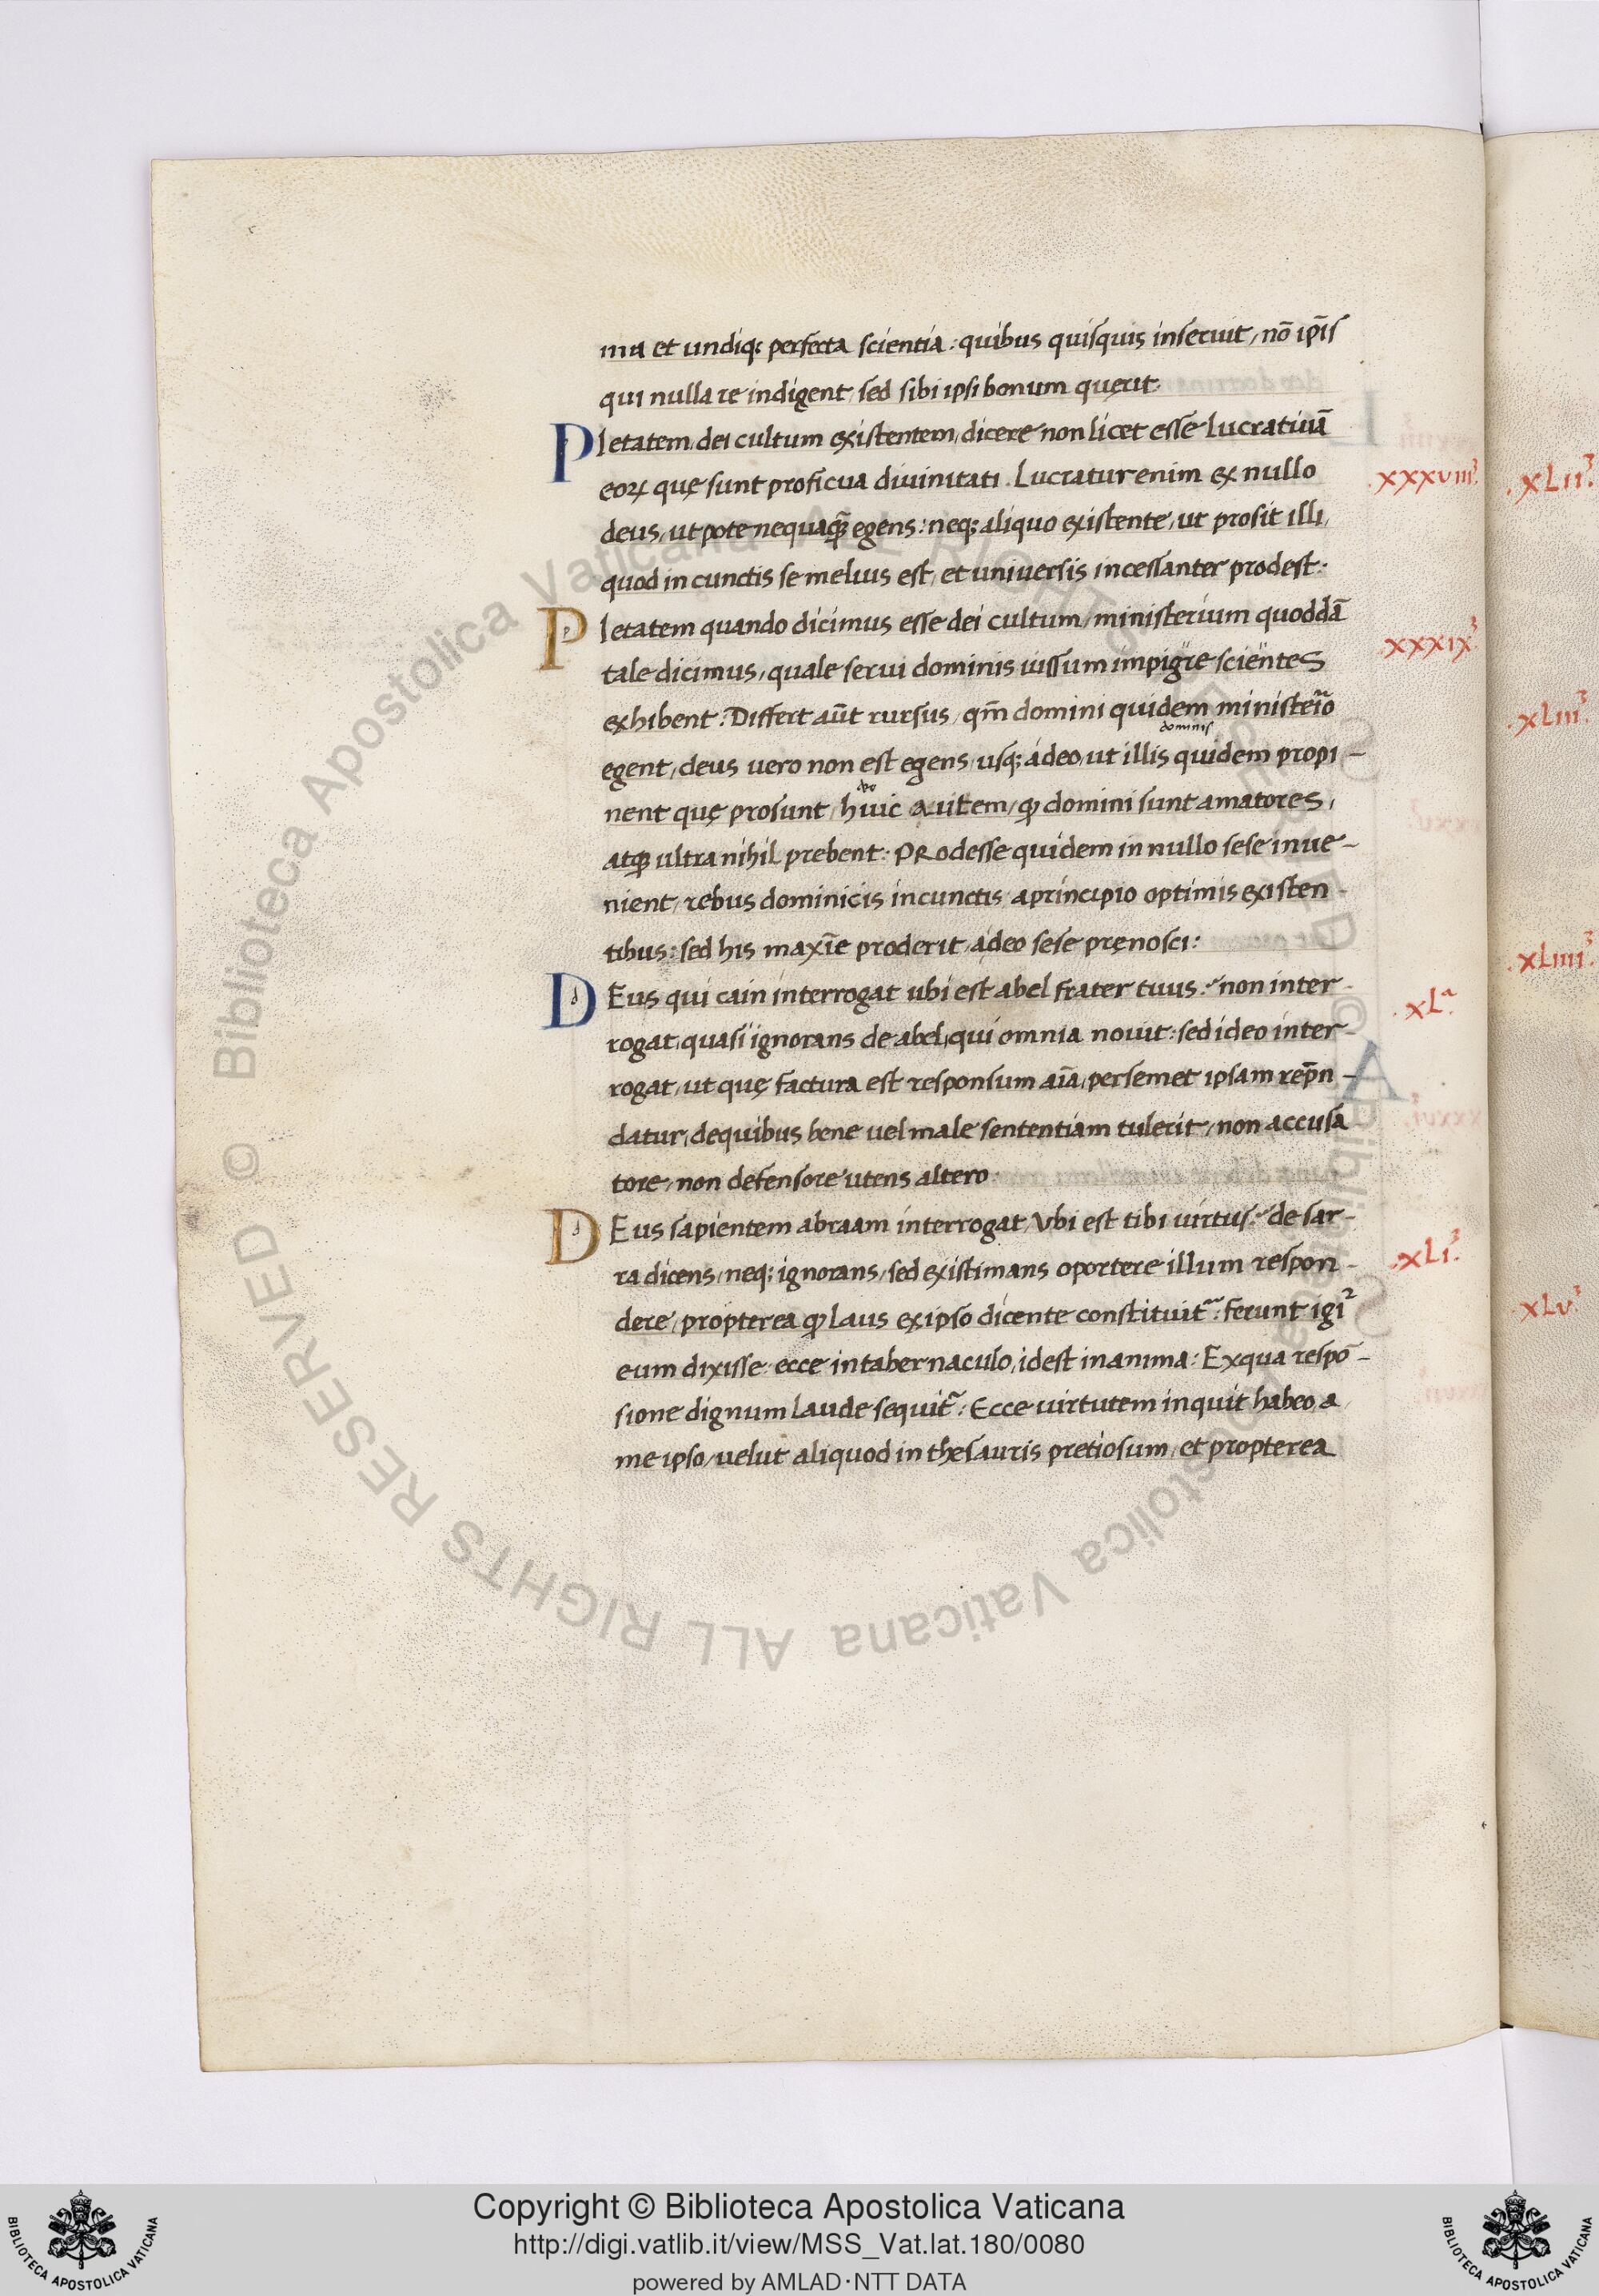 ma et undiq; perfecta scientia: quibus quisquis inseruit, nō ip̄is
qui nulla re indigent, sed sibi ipsi bonum quęrit.
PIetatem dei cultum existentem, dicere non licet esse lucratiuā
eoꝝ quę sunt proficua diuinitati. Lucratur enim ex nullo
deus, ut pote nequaq̄ egens: neq; aliquo existente, ut prosit illi,
quod in cunctis se melius est, et uniuersis incessanter prodest:
PIetatem quando dicimus esse dei cultum, ministerium quoddā
tale dicimus, quale serui dominis iussum impigre scientes
exhibent: Differt aūt rursus, qm̄ domini quidem ministerio
dominis
egent, deus uero non est egens, usq; adeo, ut illis quidem propi-
deo
nent quę prosunt, huic autem, ꝙ domini sunt amatores,
atꝙ ultra nihil prebent: PRodesse quidem in nullo sese inue-
nient, rebus dominicis in cunctis a principio optimis existen-
tibus: sed his maxīe proderit, a deo sese pręnosci:
DEus qui cain interrogat ubi est abel frater tuus: non inter-
rogat, quasi ignorans de abel, qui omnia nouit: sed ideo inter-
rogat, ut quę factura est responsum aīa, per semet ipsam rep̄n-
datur, de quibus bene uel male sententiam tulerit, non accusa
tore, non defensore utens altero.
DEus sapientem abraam interrogat, Vbi est tibi uirtus: de sar-
ra dicens, neq; ignorans, sed existimans oportere illum respon-
dere, propterea ꝙ laus ex ipso dicente constituit᷑: ferunt igi᷑
eum dixisse: ecce in tabernaculo, id est in anima: Ex qua respō-
sione dignum laude sequit᷑: Ecce uirtutem inquit habeo, a
me ipso, uelut aliquod in thesauris pretiosum, et propterea
.xxxviiiᵃ.
.xxxixᵃ.
.xLᵃ.
.xLiᵃ.
.xLiiᵃ.
.xLiiiᵃ.
.xLiiiiᵃ.
.xLvᵃ.
© Biblioteca Apostolica Vaticana ALL RIGHTS RESERVED © Biblioteca Apostolica Vaticana ALL RIGHTS RESERVED
Copyright © Biblioteca Apostolica Vaticana
http://digi.vatlib.it/view/MSS_Vat.lat.180/0080
powered by AMLAD·NTT DATA
BIBLIOTECA APOSTOLICA VATICANA
BIBLIOTECA APOSTOLICA VATICANA